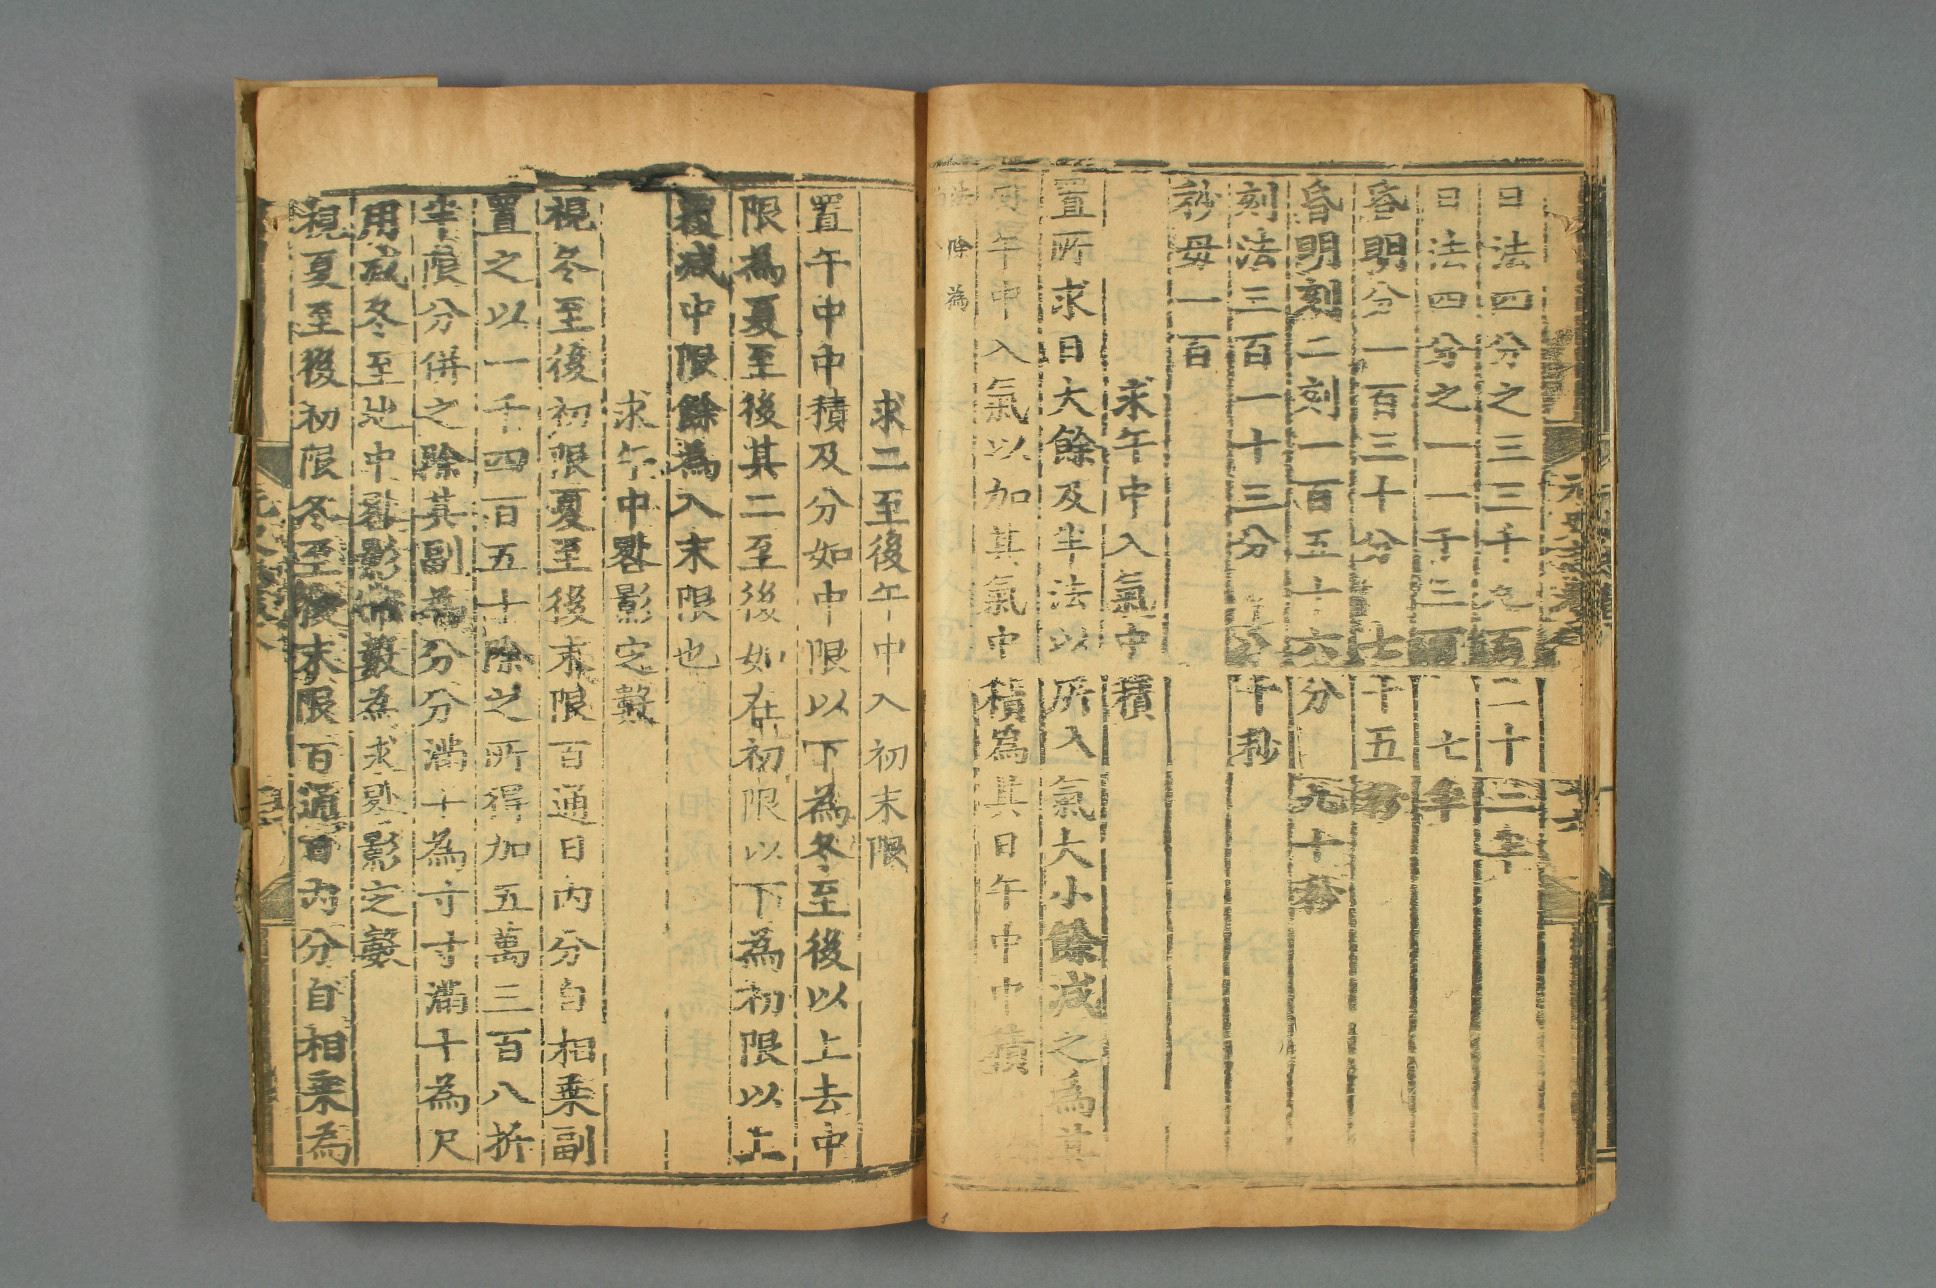 日法四分之三三千九百二十二半
日法四分之一一千三百七半
昏明分一百三十分七十五秒
昏明刻二刻一百五十六分九十秒
刻法三百一十三分 十秒
秒母一百
求午中入氣中積
置所求日大餘及半法以所入氣大小餘減之為其
午中入氣以加其氣中積為其日午中中積
除為
求二至後午中入初末限
置午中中積及分如中限以下為冬至後以上去中
限為夏至後其二至後如在初限以下為初限以上
覆減中限餘為入末限也
求午中晷影定數
視冬至後初限夏至後末限百通日內分自相乗副
置之以一千四百五十除之所得加五萬三百八折
半限分併之除其副為分分滿十為寸寸滿十為尺
用減冬至地中晷影常數為求晷影之數
視夏至後初限冬至後末限百通日內分自相乗為